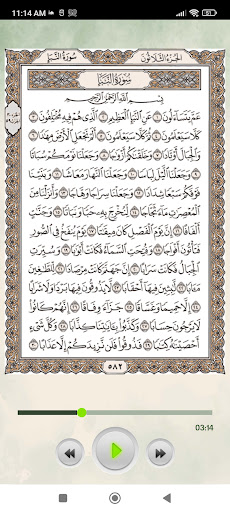 11:14 AM
الجزء الثلاثون
سورة النبإ
سُورَةُ النَّبَإِ
بِسْمِ ٱللَّهِ ٱلرَّحْمَٰنِ ٱلرَّحِيمِ
عَمَّ يَتَسَآءَلُونَ ١ عَنِ ٱلنَّبَإِ ٱلْعَظِيمِ ٢ ٱلَّذِى هُمْ فِيهِ مُخْتَلِفُونَ ٣
كَلَّا سَيَعْلَمُونَ ٤ ثُمَّ كَلَّا سَيَعْلَمُونَ ٥ أَلَمْ نَجْعَلِ ٱلْأَرْضَ مِهَٰدًا ٦
وَٱلْجِبَالَ أَوْتَادًا ٧ وَخَلَقْنَٰكُمْ أَزْوَٰجًا ٨ وَجَعَلْنَا نَوْمَكُمْ سُبَاتًا ٩
وَجَعَلْنَا ٱلَّيْلَ لِبَاسًا ١٠ وَجَعَلْنَا ٱلنَّهَارَ مَعَاشًا ١١ وَبَنَيْنَا
فَوْقَكُمْ سَبْعًا شِدَادًا ١٢ وَجَعَلْنَا سِرَاجًا وَهَّاجًا ١٣ وَأَنزَلْنَا مِنَ
ٱلْمُعْصِرَٰتِ مَآءً ثَجَّاجًا ١٤ لِّنُخْرِجَ بِهِۦ حَبًّا وَنَبَاتًا ١٥ وَجَنَّٰتٍ
أَلْفَافًا ١٦ إِنَّ يَوْمَ ٱلْفَصْلِ كَانَ مِيقَٰتًا ١٧ يَوْمَ يُنفَخُ فِى ٱلصُّورِ
فَتَأْتُونَ أَفْوَاجًا ١٨ وَفُتِحَتِ ٱلسَّمَآءُ فَكَانَتْ أَبْوَٰبًا ١٩ وَسُيِّرَتِ
ٱلْجِبَالُ فَكَانَتْ سَرَابًا ٢٠ إِنَّ جَهَنَّمَ كَانَتْ مِرْصَادًا ٢١ لِّلطَّٰغِينَ
مَـَٔابًا ٢٢ لَّٰبِثِينَ فِيهَآ أَحْقَابًا ٢٣ لَّا يَذُوقُونَ فِيهَا بَرْدًا وَلَا شَرَابًا ٢٤
إِلَّا حَمِيمًا وَغَسَّاقًا ٢٥ جَزَآءً وِفَاقًا ٢٦ إِنَّهُمْ كَانُوا۟
لَا يَرْجُونَ حِسَابًا ٢٧ وَكَذَّبُوا۟ بِـَٔايَٰتِنَا كِذَّابًا ٢٨ وَكُلَّ شَىْءٍ
أَحْصَيْنَٰهُ كِتَٰبًا ٢٩ فَذُوقُوا۟ فَلَن نَّزِيدَكُمْ إِلَّا عَذَابًا ٣٠
٥٨٢
03:14